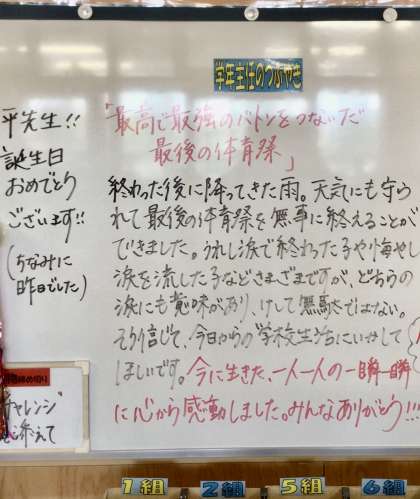 学年主任のつぶやき
平先生!!
誕生日
おめでとう
ございます!!
(ちなみに
昨日でした)
「最高で最強のバトンをつないだ
最後の体育祭」
終わった後に降ってきた雨。天気にも守ら
れて最後の体育祭を無事に終えることが
できました。うれし涙で終わった子や悔やし
涙を流した子などさまざまですが、どちらの
涙にも意味があり、けして無駄ではない。
そう信じて、今日からの学校生活にいかして
ほしいです。今に生きた、一人一人の一瞬一瞬
に心から感動しました。みんなありがとう!!!
締め切り
チャレンジ
添えて
1組
2組
5組
6組